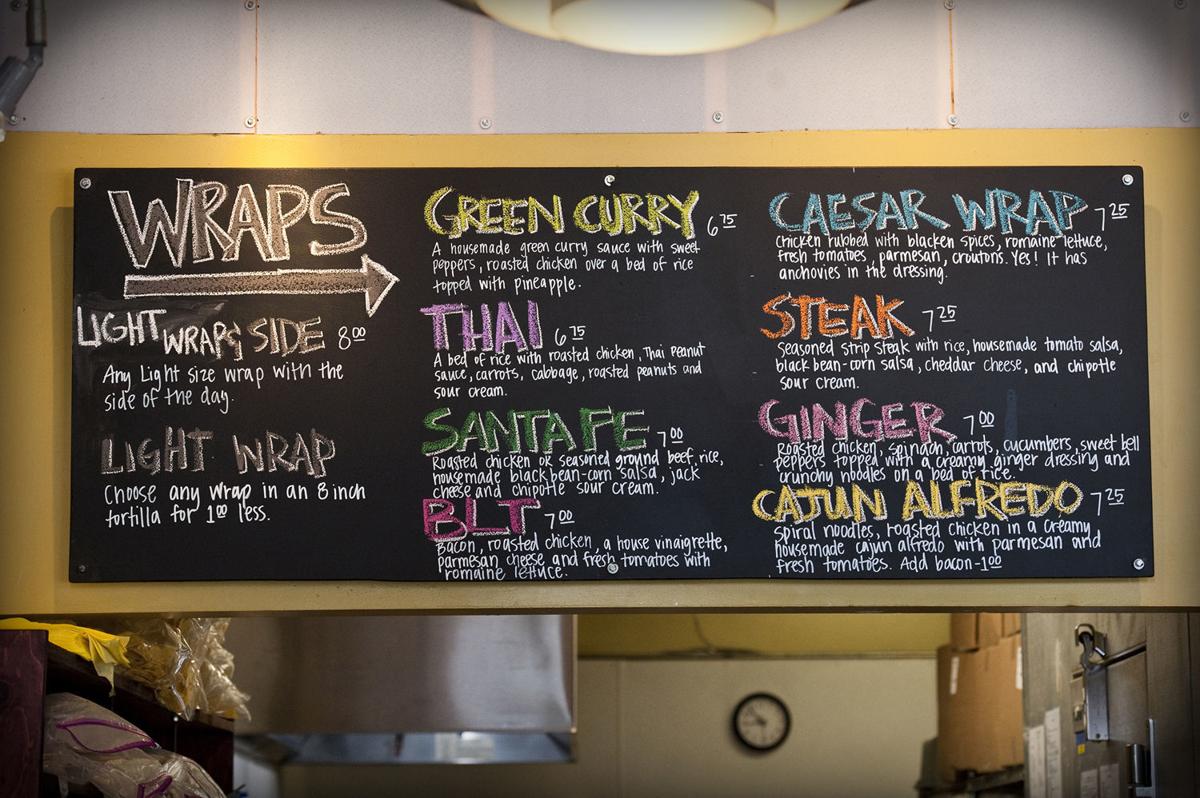 WRAPS
LIGHT WRAP & SIDE 8.00
Any Light size wrap with the
side of the day.
LIGHT WRAP
Choose any wrap in an 8 inch
tortilla for 1.00 less.
GREEN CURRY 6.75
A housemade green curry sauce with sweet
peppers, roasted chicken over a bed of rice
topped with pineapple.
THAI 6.75
A bed of rice with roasted chicken, Thai Peanut
sauce, carrots, cabbage, roasted peanuts and
sour cream.
SANTA FE 7.00
Roasted chicken or seasoned ground beef, rice,
housemade black bean-corn salsa, jack
cheese and chipotle sour cream.
BLT 7.00
Bacon, roasted chicken, a house vinaigrette,
parmesan cheese and fresh tomatoes with
romaine lettuce.
CAESAR WRAP 7.25
Chicken rubbed with blacken spices, romaine lettuce,
fresh tomatoes, parmesan, croutons. Yes! It has
anchovies in the dressing.
STEAK 7.25
Seasoned strip steak with rice, housemade tomato salsa,
black bean-corn salsa, cheddar cheese, and chipotle
sour cream.
GINGER 7.00
Roasted chicken, spinach, carrots, cucumbers, sweet bell
peppers topped with a creamy ginger dressing and
crunchy noodles on a bed of rice.
CAJUN ALFREDO 7.25
Spiral noodles, roasted chicken in a creamy
housemade cajun alfredo with parmesan and
fresh tomatoes. Add bacon - 1.00